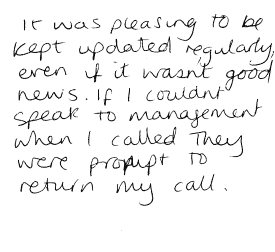 It was pleasing to be
kept updated regularly,
even if it wasnt good
news. If I couldnt
speak to management
when I called They
were prompt to
return my call.